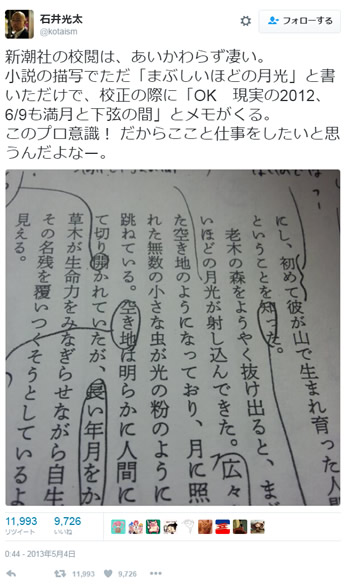 石井光太
@kotaism
フォローする
新潮社の校閲は、あいかわらず凄い。
小説の描写でただ「まぶしいほどの月光」と書
いただけで、校正の際に「OK 現実の2012、
6/9も満月と下弦の間」とメモがくる。
このプロ意識！ だからここと仕事をしたいと思
うんだよなー。
にし、初めて彼が山で生まれ育った人
ということを知った。
老木の森をようやく抜け出ると、まぶ
いほどの月光が射し込んできた。広々
た空き地のようになっており、月に照
れた無数の小さな虫が光の粉のように
跳ねている。空き地は明らかに人間に
て切り開かれていたが、長い年月をか
草木が生命力をみなぎらせながら自生
その名残を覆いつくそうとしているよ
見える。
11,993 9,726
リツイート いいね
0:44 - 2013年5月4日
11,993 9,726